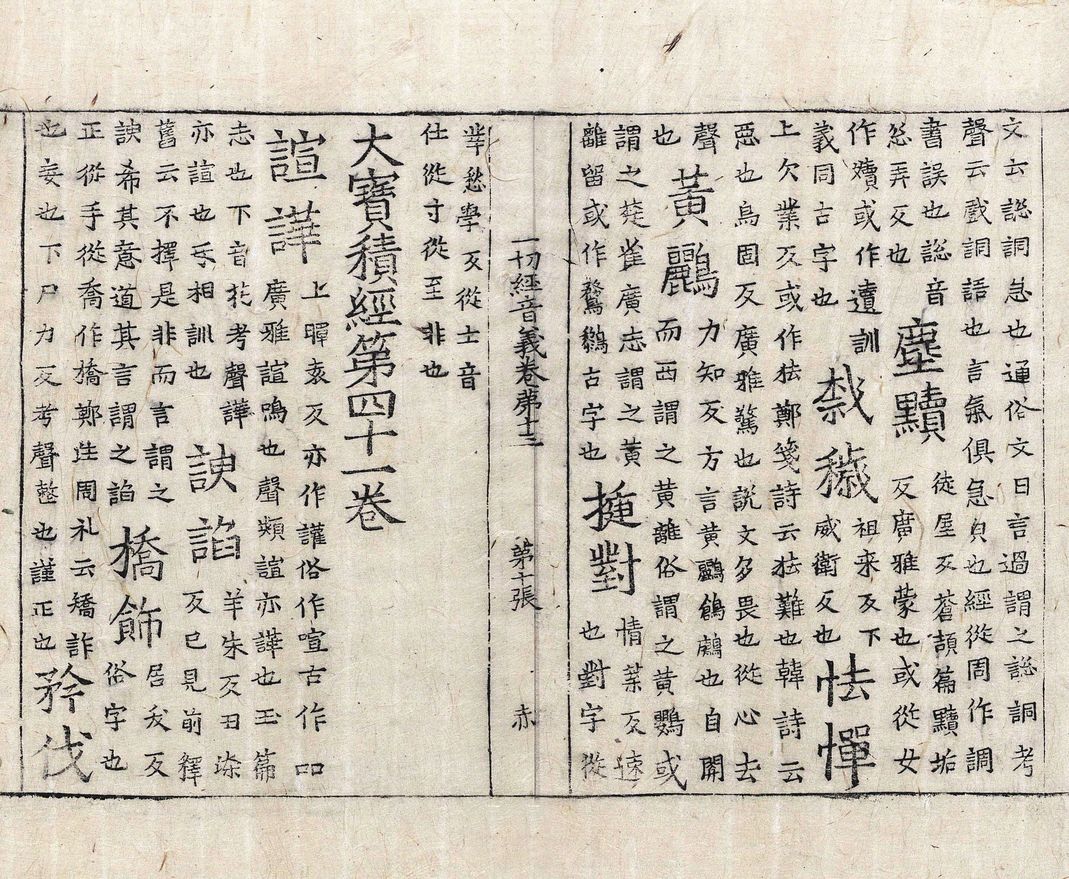 文云諰詷急也通俗文曰言過謂之諰詷考
聲云戲詷語也言氣俱急皃也經從周作調
書誤也諰音
怱弄反也
塵黷
徒屋反蒼頡篇黷垢
反廣雅蒙也或從女
作嬻或作遺訓
義同古字也
裁穢
祖来反下
威衛反也
怯憚
上欠業反或作㹤鄭箋詩云㹤難也韓詩云
惡也烏固反廣雅驚也說文多畏也從心去
聲
也
黃鸝
力知反方言黃鸝鶬鶊也自關
而西謂之黃離俗謂之黃鸎或
謂之楚雀廣志謂之黃
離留或作鶖鶹古字也
揵對
情葉反速
也對字從
丵愁學反從士音
仕從寸從至非也
一切經音義卷第十三 第十張 赤
大寶積經第四十一卷
諠譁
上暉袁反亦作讙俗作喧古作吅
廣雅諠鳴也聲類諠亦譁也玉篇
志也下音花考聲譁
亦諠也互相訓也
諛諂
羊朱反丑染
反已見前釋
舊云不擇是非而言謂之
諛希其意道其言謂之諂
橋飾
居夭反
俗字也
正從手從喬作橋鄭注周礼云矯詐
也妄也下尸力反考聲愸也謹正也
矜伐